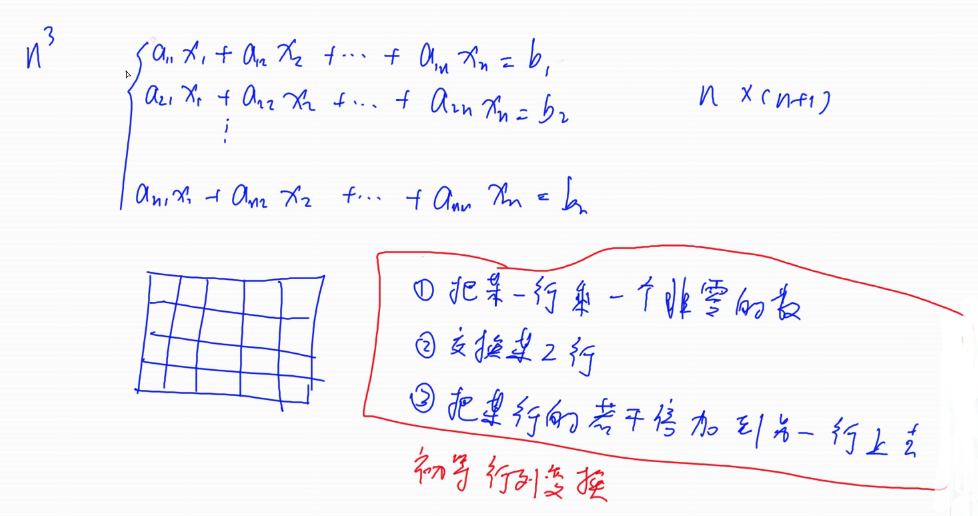 n³
a₁₁x₁ + a₁₂x₂ + ⋯ + a₁ₙxₙ = b₁
a₂₁x₁ + a₂₂x₂ + ⋯ + a₂ₙxₙ = b₂
⋮
aₙ₁x₁ + aₙ₂x₂ + ⋯ + aₙₙxₙ = bₙ
n×(n+1)
① 把某一行乘一个非零的数
② 交换某2行
③ 把某行的若干倍加到另一行上去
初等行列变换